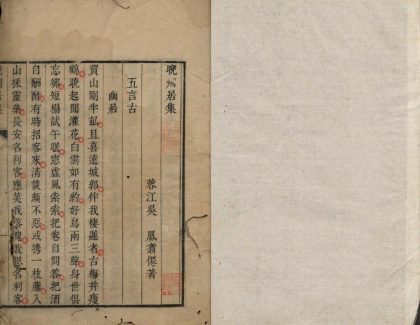 居集
蓉江吳 鳳翥僊著
五言古
幽居
買山剛半畝且喜遠城郭伴我棲遲者古梅并瘦
鶴曉起閒灌花白雲如有約好鳥兩三聲身世俱
忘卻短榻試午眠窓虛風索索把卷自問答把酒
自酬酢有時招客來清談頗不惡或携一枝藤入
山採靈藥長安名利客應笑我落魄我思名利客